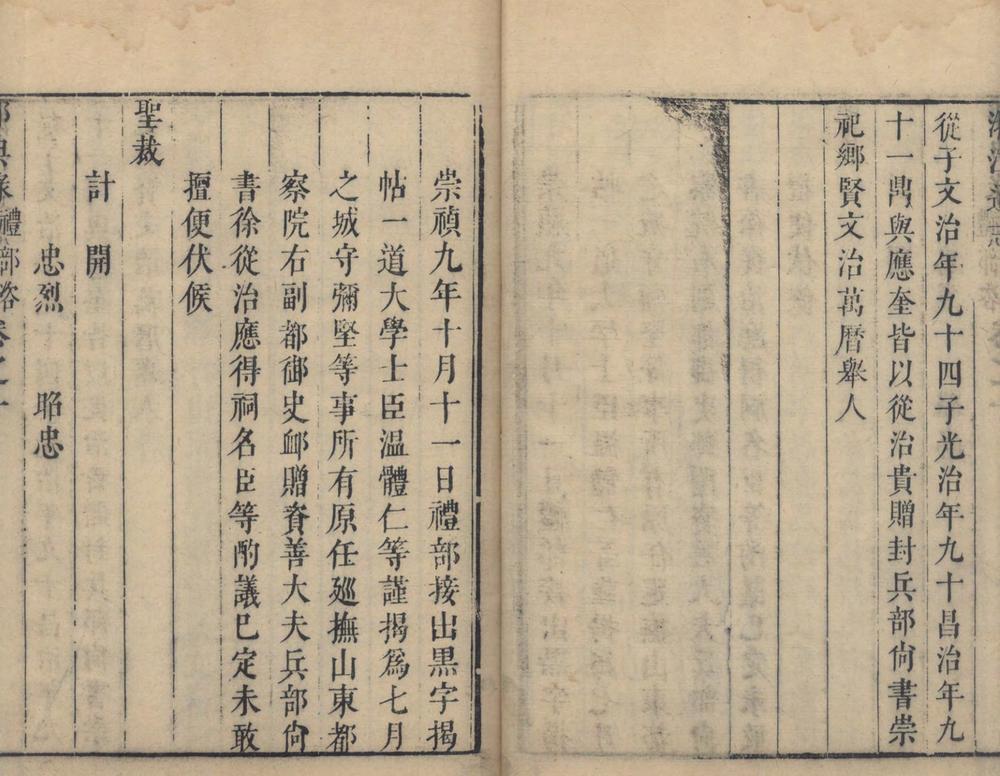 從子文治年九十四子光治年九十昌治年九
十一鼎與應奎皆以從治貴贈封兵部尙書崇
祀鄉賢文治萬曆舉人
崇禎九年十月十一日禮部接出黑字揭
帖一道大學士臣溫體仁等謹揭爲七月
之城守彌堅等事所有原任廵撫山東都
察院右副都御史䘏贈資善大夫兵部尙
書徐從治應得祠名臣等酌議已定未敢
擅便伏候
聖裁
計開
忠烈　昭忠